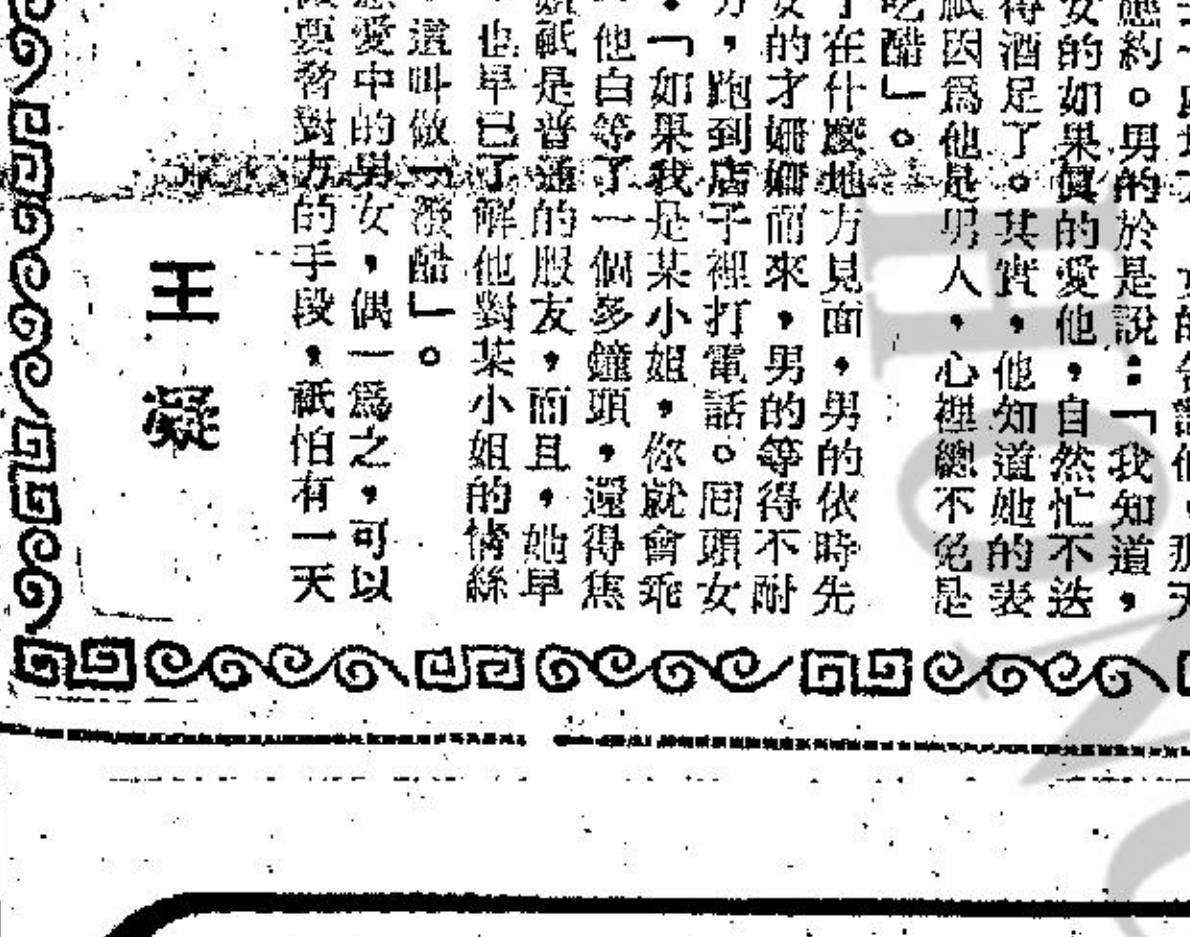 應約。男的於是說：「我知道，
女的如果真的愛他，自然忙不迭
得酒足了。其實，他知道她的表
祇因爲他是男人，心裡總不免是
吃醋」。
在什麼地方見面，男的依時先
女的才姍姍而來，男的等得不耐
，跑到店子裡打電話。囘頭女
。「如果我是某小姐，你就會乖
他白等了一個多鐘頭，還得焦
祇是普通的朋友，而且，她早
也早已了解他對某小姐的情絲
，這叫做「潑醋」。
愛中的男女，偶一爲之，可以
要脅對方的手段，祇怕有一天
王凝